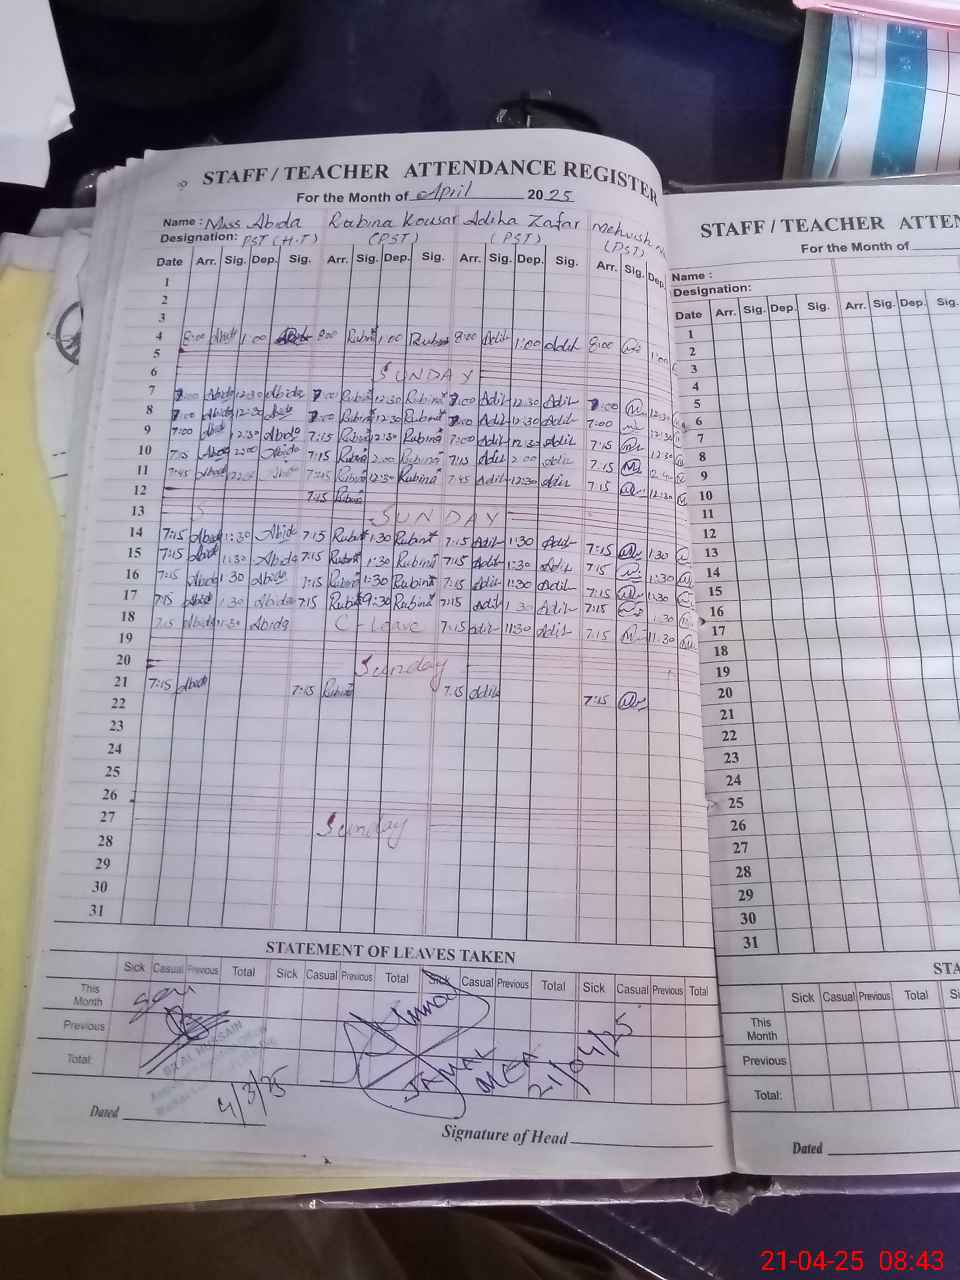 STAFF / TEACHER ATTENDANCE REGISTER
For the Month of April 2025
Name : Miss Abida Rubina Kousar Adiha Zafar Mehvish
Designation: PST (H.T) (PST) (PST) (PST)
Date Arr. Sig. Dep. Sig. Arr. Sig. Dep. Sig. Arr. Sig. Dep. Sig. Arr. Sig. Dep.
1
2
3
4 8:00 Abida 1:00 8:00 Rubina 1:00 Rubina 8:00 Adih 1:00 Adih 8:00 1:00
5
6 SUNDAY
7 7:00 Abida 12:30 Abida 7:00 Rubina 12:30 Rubina 7:00 Adih 12:30 Adih 7:00 12:30
8 7:00 Abida 12:30 Abida 7:00 Rubina 12:30 Rubina 7:00 Adih 12:30 Adih 7:00 12:30
9 7:00 Abida 12:30 Abida 7:15 Rubina 12:30 Rubina 7:00 Adih 12:30 Adih 7:15 12:30
10 7:15 Abida 2:00 Abida 7:15 Rubina 2:00 Rubina 7:15 Adih 2:00 Adih 7:15
11 7:45 Abida Rubina 12:30 Rubina 7:45 Adih 12:30 Adih 7:15 12:30
12 7:15 Rubina
13 SUNDAY
14 7:15 Abida 1:30 Abida 7:15 Rubina 1:30 Rubina 7:15 Adih 1:30 Adih 7:15 1:30
15 7:15 Abida 1:30 Abida 7:15 Rubina 1:30 Rubina 7:15 Adih 1:30 Adih 7:15 1:30
16 7:15 Abida 1:30 Abida 7:15 Rubina 1:30 Rubina 7:15 Adih 1:30 Adih 7:15 1:30
17 7:15 Abida 1:30 Abida 7:15 Rubina 9:30 Rubina 7:15 Adih 1:30 Adih 7:15 1:30
18 7:15 Abida 11:30 Abida C-Leave 7:15 Adih 11:30 Adih 7:15 11:30
19
20 Sunday
21 7:15 Abida 7:15 Rubina 7:15 Adih 7:15
22
23
24
25
26
27 Sunday
28
29
30
31
STATEMENT OF LEAVES TAKEN
Sick Casual Previous Total Sick Casual Previous Total Sick Casual Previous Total Sick Casual Previous Total
This Month
Previous
Total:
BILAL HUSSAIN
4/3/25
JAMAL
MEA
21/04/25
Dated
Signature of Head
STAFF / TEACHER ATTEN
For the Month of
Name :
Designation:
Date Arr. Sig. Dep. Sig. Arr. Sig. Dep. Sig.
1
2
3
4
5
6
7
8
9
10
11
12
13
14
15
16
17
18
19
20
21
22
23
24
25
26
27
28
29
30
31
STA
Sick Casual Previous Total
This Month
Previous
Total:
Dated
21-04-25 08:43